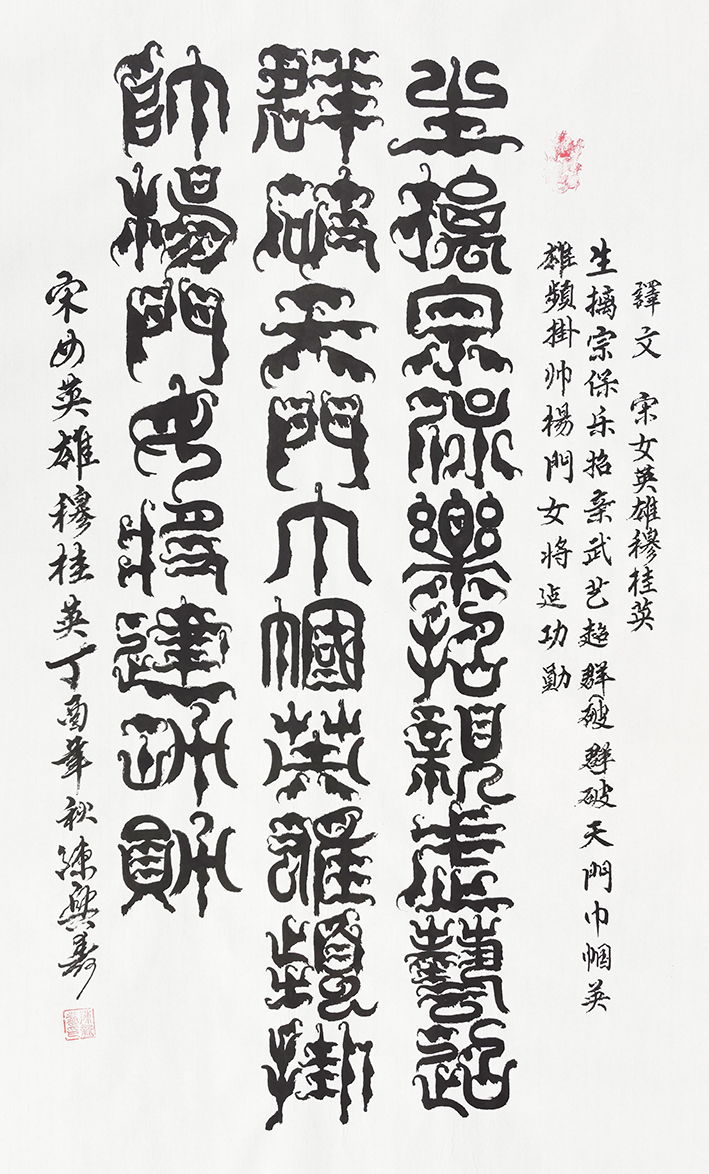 譯文 宋女英雄穆桂英
生擒宗保乐招亲武艺超群破群破天門巾帼英
雄頻掛帅楊門女将建功勛
生擒宗保樂招親武藝超
群破天門巾幗英雄頻掛
帥楊門女將建功勛
宋女英雄穆桂英丁酉年秋興寿